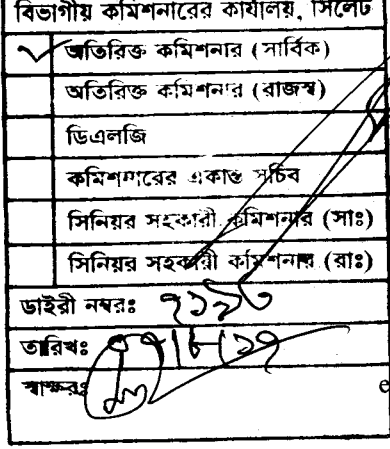 বিভাগীয় কমিশনারের কার্যালয়, সিলেট
অতিরিক্ত কমিশনার (সার্বিক)
অতিরিক্ত কমিশনার (রাজস্ব)
ডিএলজি
কমিশনারের একান্ত সচিব
সিনিয়র সহকারী কমিশনার (সাঃ)
সিনিয়র সহকারী কমিশনার (রাঃ)
ডাইরী নম্বরঃ
তারিখঃ
স্বাক্ষরঃ